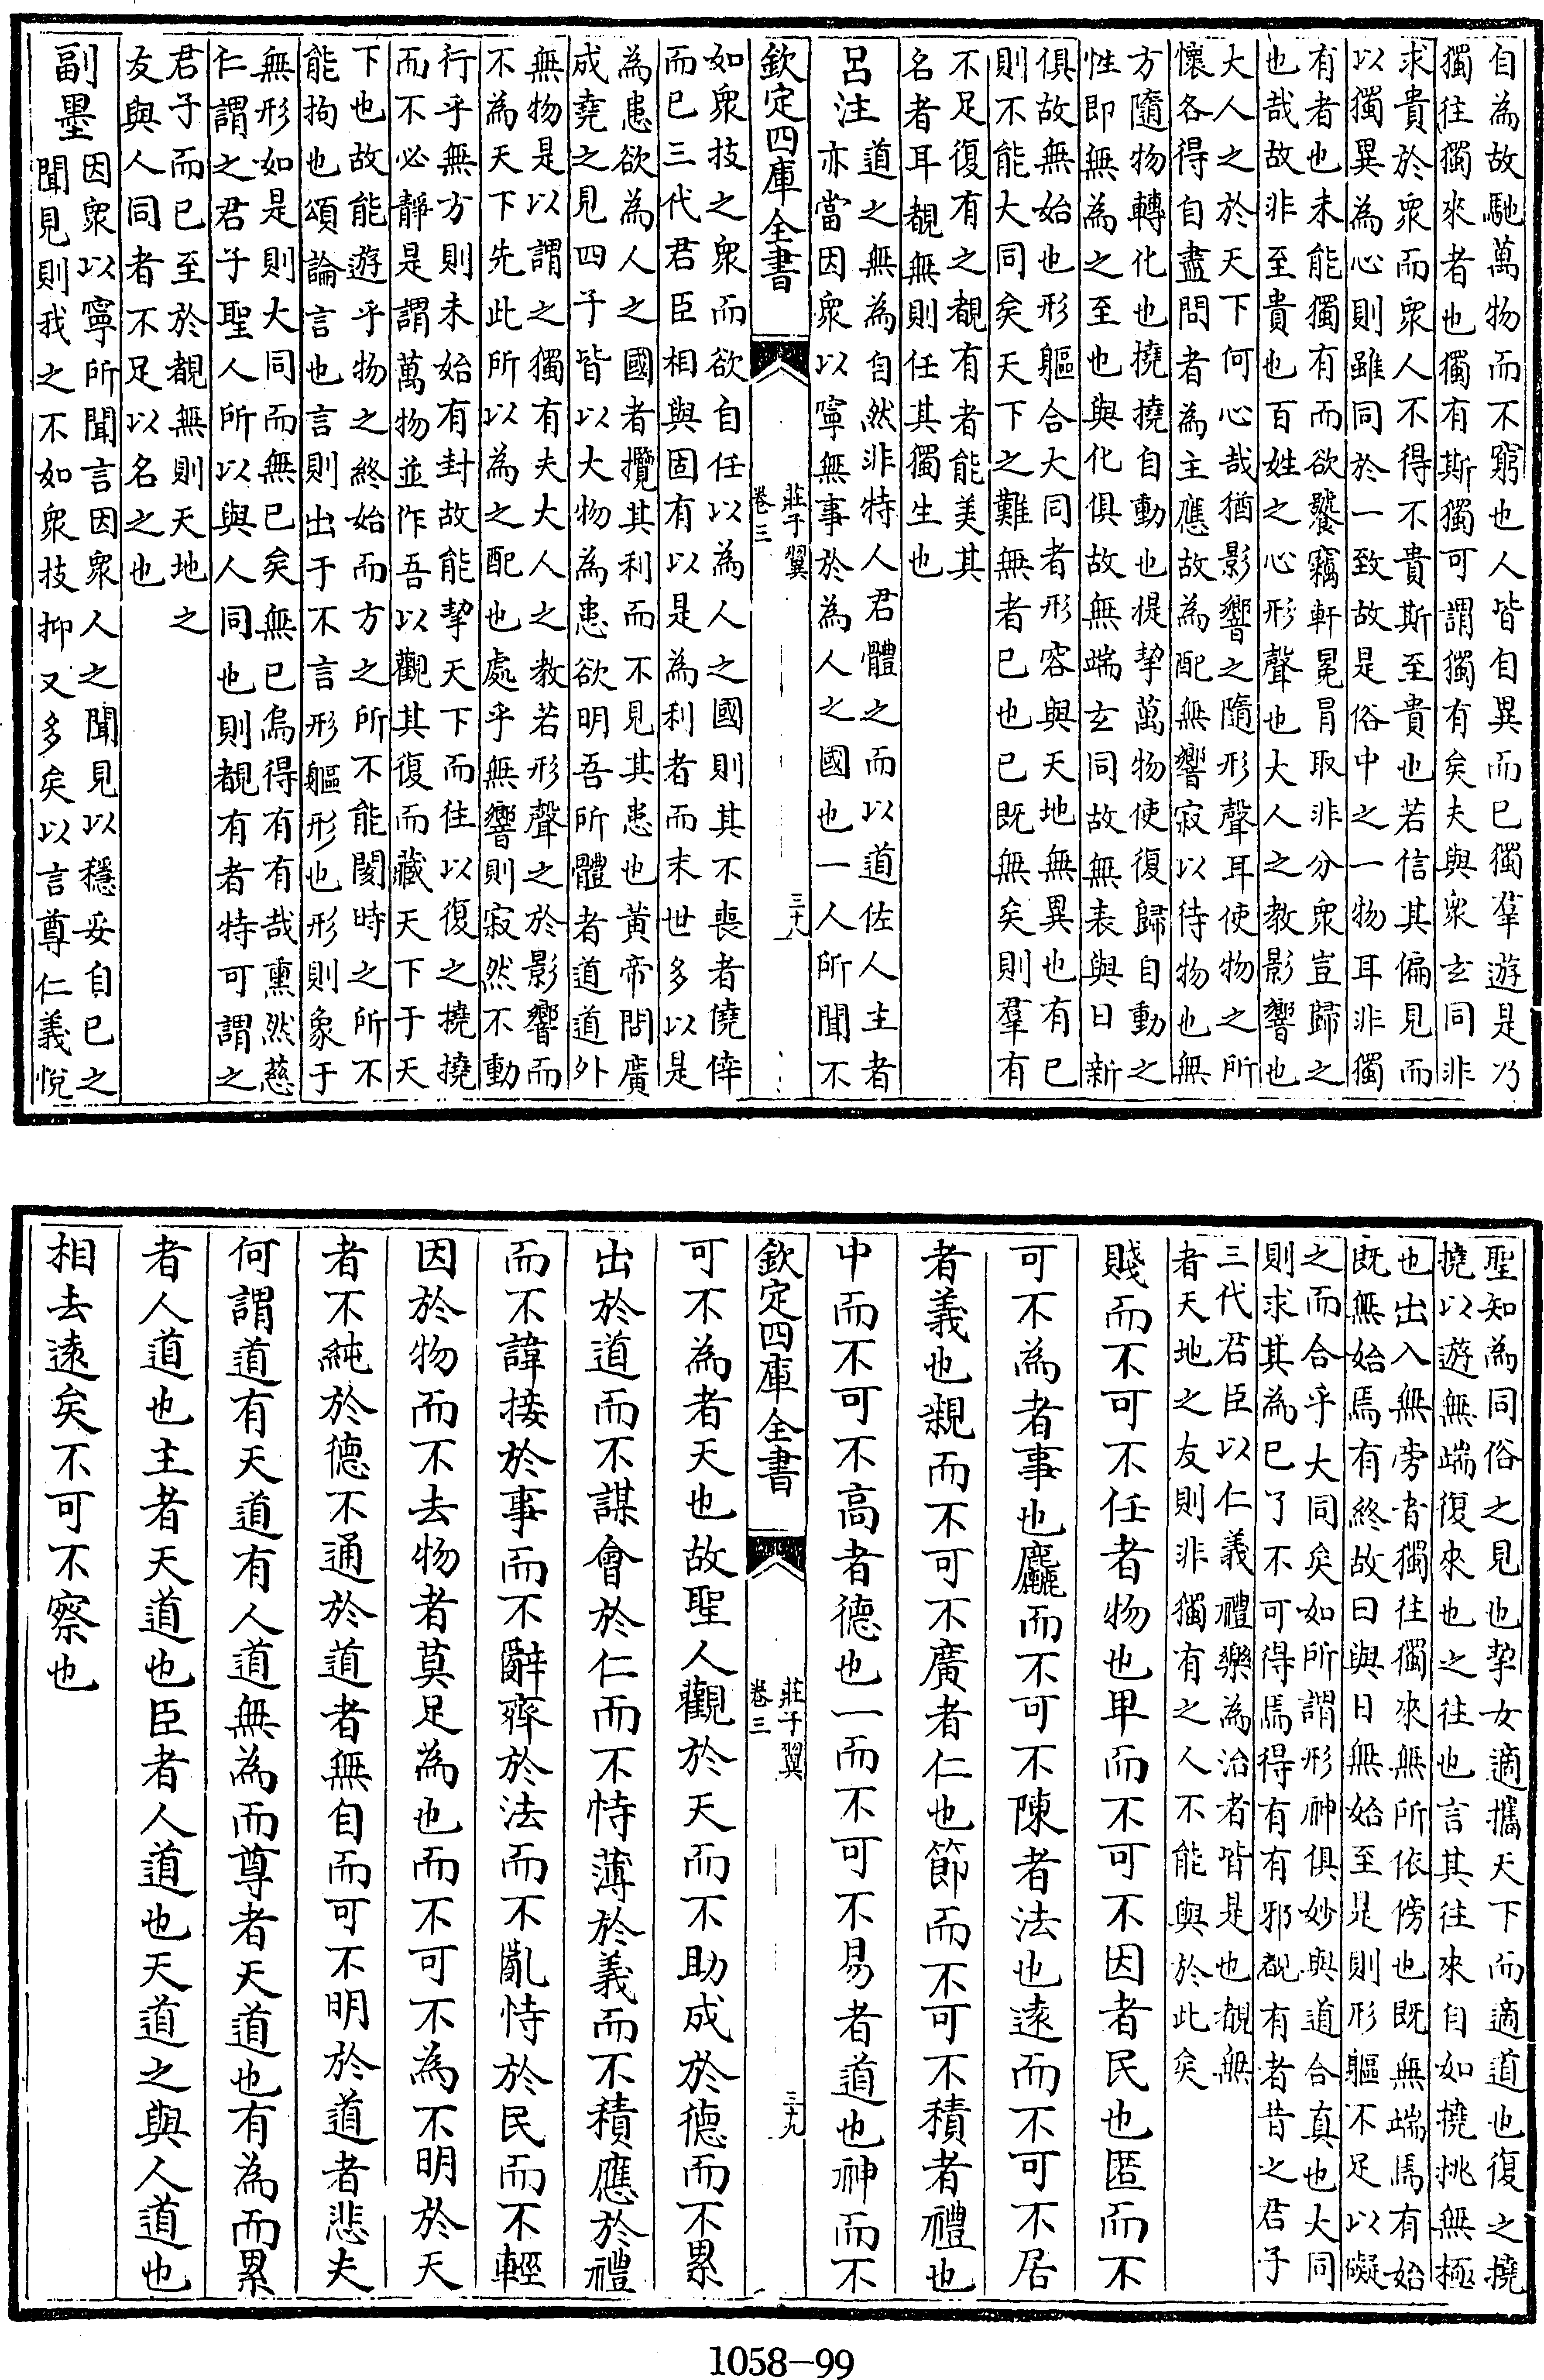 自為故馳萬物而不窮也人皆自異而已獨羣遊是乃
獨往獨來者也獨有斯獨可謂獨有矣夫與衆玄同非
求貴於衆而衆人不得不貴斯至貴也若信其偏見而
以獨異為心則雖同於一致故是俗中之一物耳非獨
有者也未能獨有而欲饕竊軒冕冒取非分衆豈歸之
也哉故非至貴也百姓之心形聲也大人之教影響也
大人之於天下何心哉猶影響之隨形聲耳使物之所
懷各得自盡問者為主應故為配無響寂以待物也無
方隨物轉化也撓撓自動也提挈萬物使復歸自動之
性即無為之至也與化俱故無端玄同故無表與日新
俱故無始也形軀合大同者形容與天地無異也有已
則不能大同矣天下之難無者已也已既無矣則羣有
不足復有之覩有者能美其
名者耳覩無則任其獨生也
呂注
道之無為自然非特人君體之而以道佐人主者
亦當因衆以寧無事於為人之國也一人所聞不
欽定四庫全書
莊子翼
卷三
三十九
如衆技之衆而欲自任以為人之國則其不喪者僥倖
而已三代君臣相與固有以是為利者而末世多以是
為患欲為人之國者攬其利而不見其患也黃帝問廣
成堯之見四子皆以大物為患欲明吾所體者道道外
無物是以謂之獨有夫大人之教若形聲之於影響而
不為天下先此所以為之配也處乎無響則寂然不動
行乎無方則未始有封故能挈天下而往以復之撓撓
而不必靜是謂萬物並作吾以觀其復而藏天下于天
下也故能遊乎物之終始而方之所不能閡時之所不
能拘也頌論言也言則出于不言形軀形也形則象于
無形如是則大同而無已矣無已烏得有有哉熏然慈
仁謂之君子聖人所以與人同也則覩有者特可謂之
君子而已至於覩無則天地之
友與人同者不足以名之也
副墨
因衆以寧所聞言因衆人之聞見以穩妥自已之
聞見則我之不如衆技抑又多矣以言尊仁義悅
聖知為同俗之見也挈女適攜天下而適道也復之撓
撓以遊無端復來也之往也言其往來自如撓挑無極
也出入無旁者獨往獨來無所依傍也既無端焉有始
既無始焉有終故曰與日無始至是則形軀不足以礙
之而合乎大同矣如所謂形神俱妙與道合真也大同
則求其為已了不可得焉得有有邪覩有者昔之君子
三代君臣以仁義禮樂為治者皆是也覩無
者天地之友則非獨有之人不能與於此矣
賤而不可不任者物也卑而不可不因者民也匿而不
可不為者事也麤而不可不陳者法也遠而不可不居
者義也親而不可不廣者仁也節而不可不積者禮也
中而不可不高者德也一而不可不易者道也神而不
欽定四庫全書
莊子翼
卷三
三十九
可不為者天也故聖人觀於天而不助成於德而不累
出於道而不謀會於仁而不恃薄於義而不積應於禮
而不諱接於事而不辭齊於法而不亂恃於民而不輕
因於物而不去物者莫足為也而不可不為不明於天
者不純於德不通於道者無自而可不明於道者悲夫
何謂道有天道有人道無為而尊者天道也有為而累
者人道也主者天道也臣者人道也天道之與人道也
相去遠矣不可不察也
1058-99